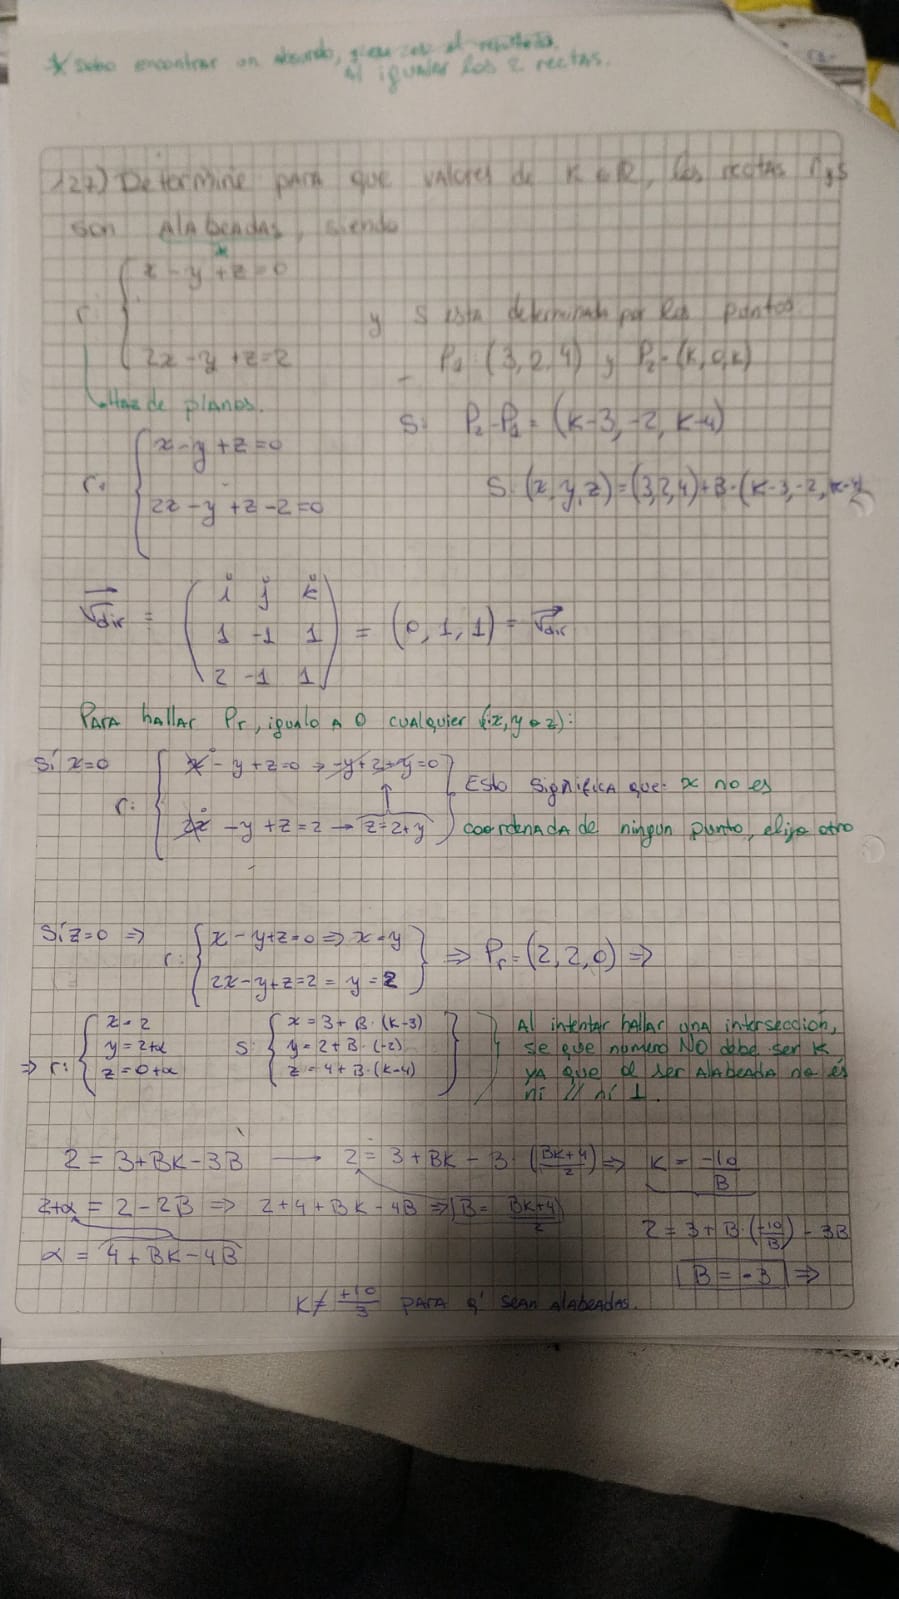 * Debo encontrar un absurdo, el resultado.
Al igualar las 2 rectas.
127) Determine para que valores de K ∈ R, las rectas r y s
son ALABEADAS, siendo
*
r: { x - y + z = 0
y S esta determinada por los puntos
2x - y + z = 2
P1 = (3, 2, 4) y P2 = (K, 0, K)
Haz de planos.
S: P2 - P1 = (K-3, -2, K-4)
r: { x - y + z = 0
2x - y + z - 2 = 0
S: (x, y, z) = (3,2,4) + B · (K-3, -2, K-4)
Vdir = ( i j k
1 -1 1
2 -1 1 ) = (0, 1, 1) = Vdir
PARA hallar Pr, igualo A 0 cualquier (x, y o z):
Si x=0
r: { x - y + z = 0 → -y + 2 + y = 0
2x - y + z = 2 → z = 2 + y
Esto significa que: x no es
coordenada de ningun punto, elijo otro
Si z=0 ⇒ r: { x - y + z = 0 ⇒ x = y
2x - y + z = 2 = y = 2 } ⇒ Pr = (2, 2, 0) ⇒
⇒ r: { x = 2
y = 2+α
z = 0+α
S: { x = 3 + B · (K-3)
y = 2 + B · (-2)
z = 4 + B · (K-4) }
Al intentar hallar una intersección,
se que numero NO debe ser K
YA que al ser ALABEADA no es
ni // ni ⊥.
2 = 3 + BK - 3B → 2 = 3 + BK - 3 · (BK+4/2) ⇒ K = -10/B
2+α = 2 - 2B ⇒ 2 + 4 + BK - 4B ⇒ B = BK+4/2
2 = 3 + B · (-10/B) - 3B
α = 4 + BK - 4B
B = -3 ⇒
K ≠ +10/3 PARA q' sean alabeadas.